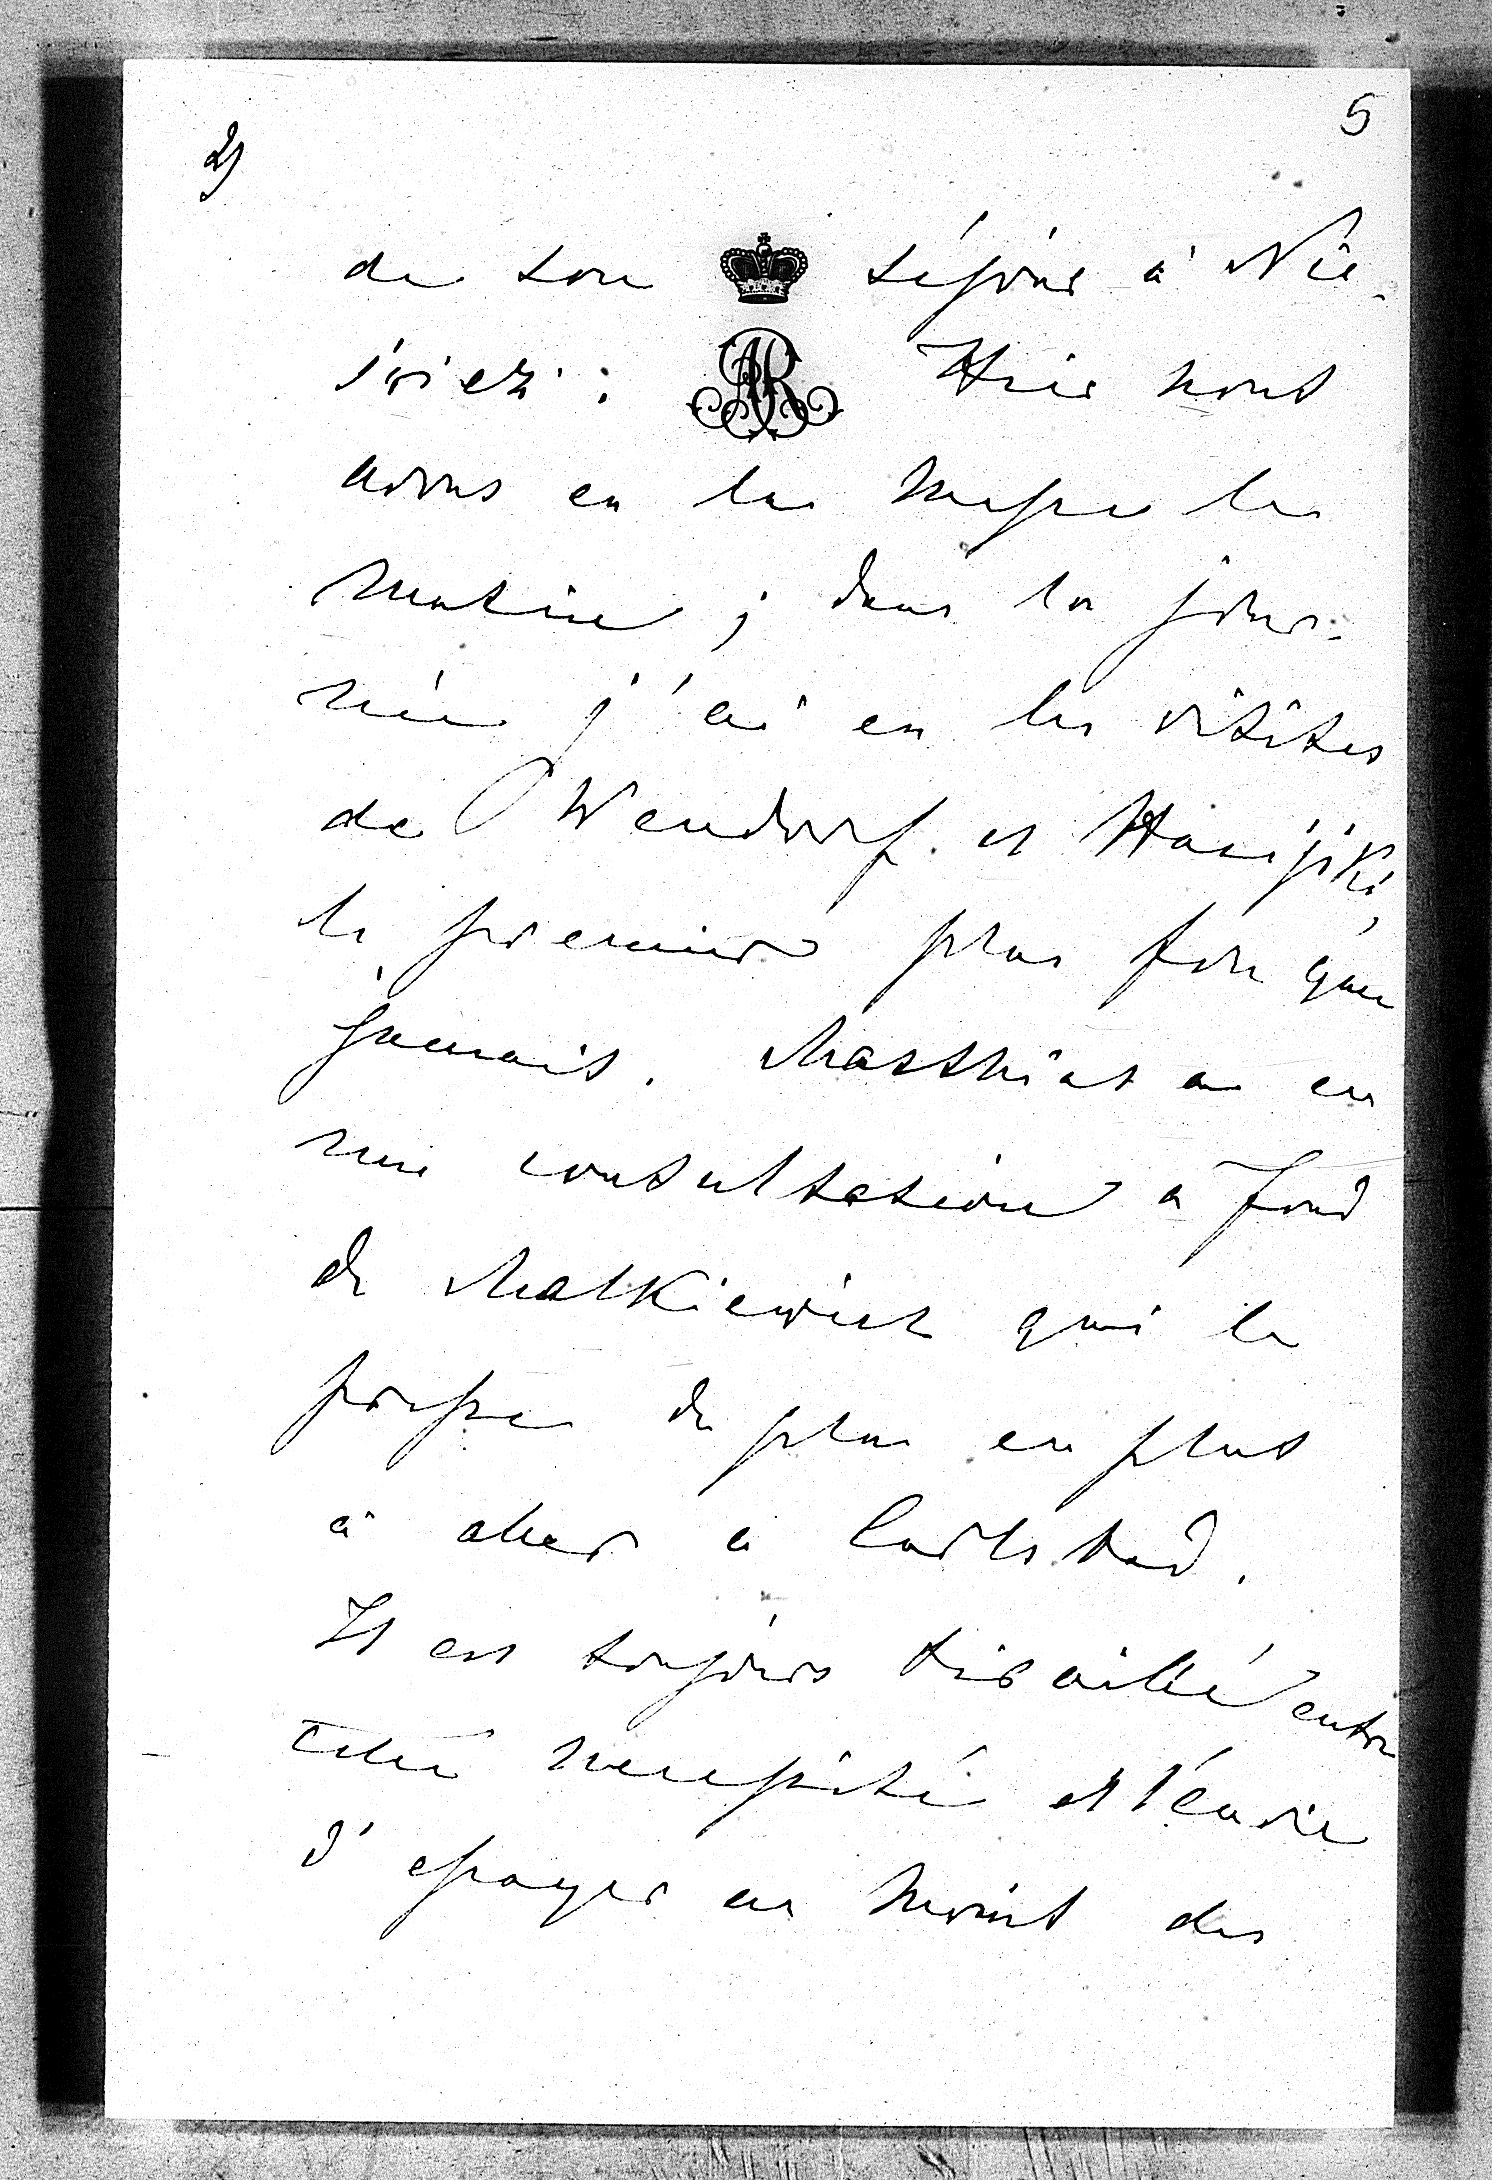 2)
5
de son séjour à Nie-
śwież: Hier nous
avons eu la messe le
matin; dans la jour-
née j'ai eu les visites
de Wendorf et
le premier plus fou que
jamais. Matthias a eu
une consultation à fond
de Malkiewicz qui le
presse de plus en plus
à aller à Carlsbad.
Il est toujours tiraillé entre
cette necessité et l'envie
d'essayer au moins des